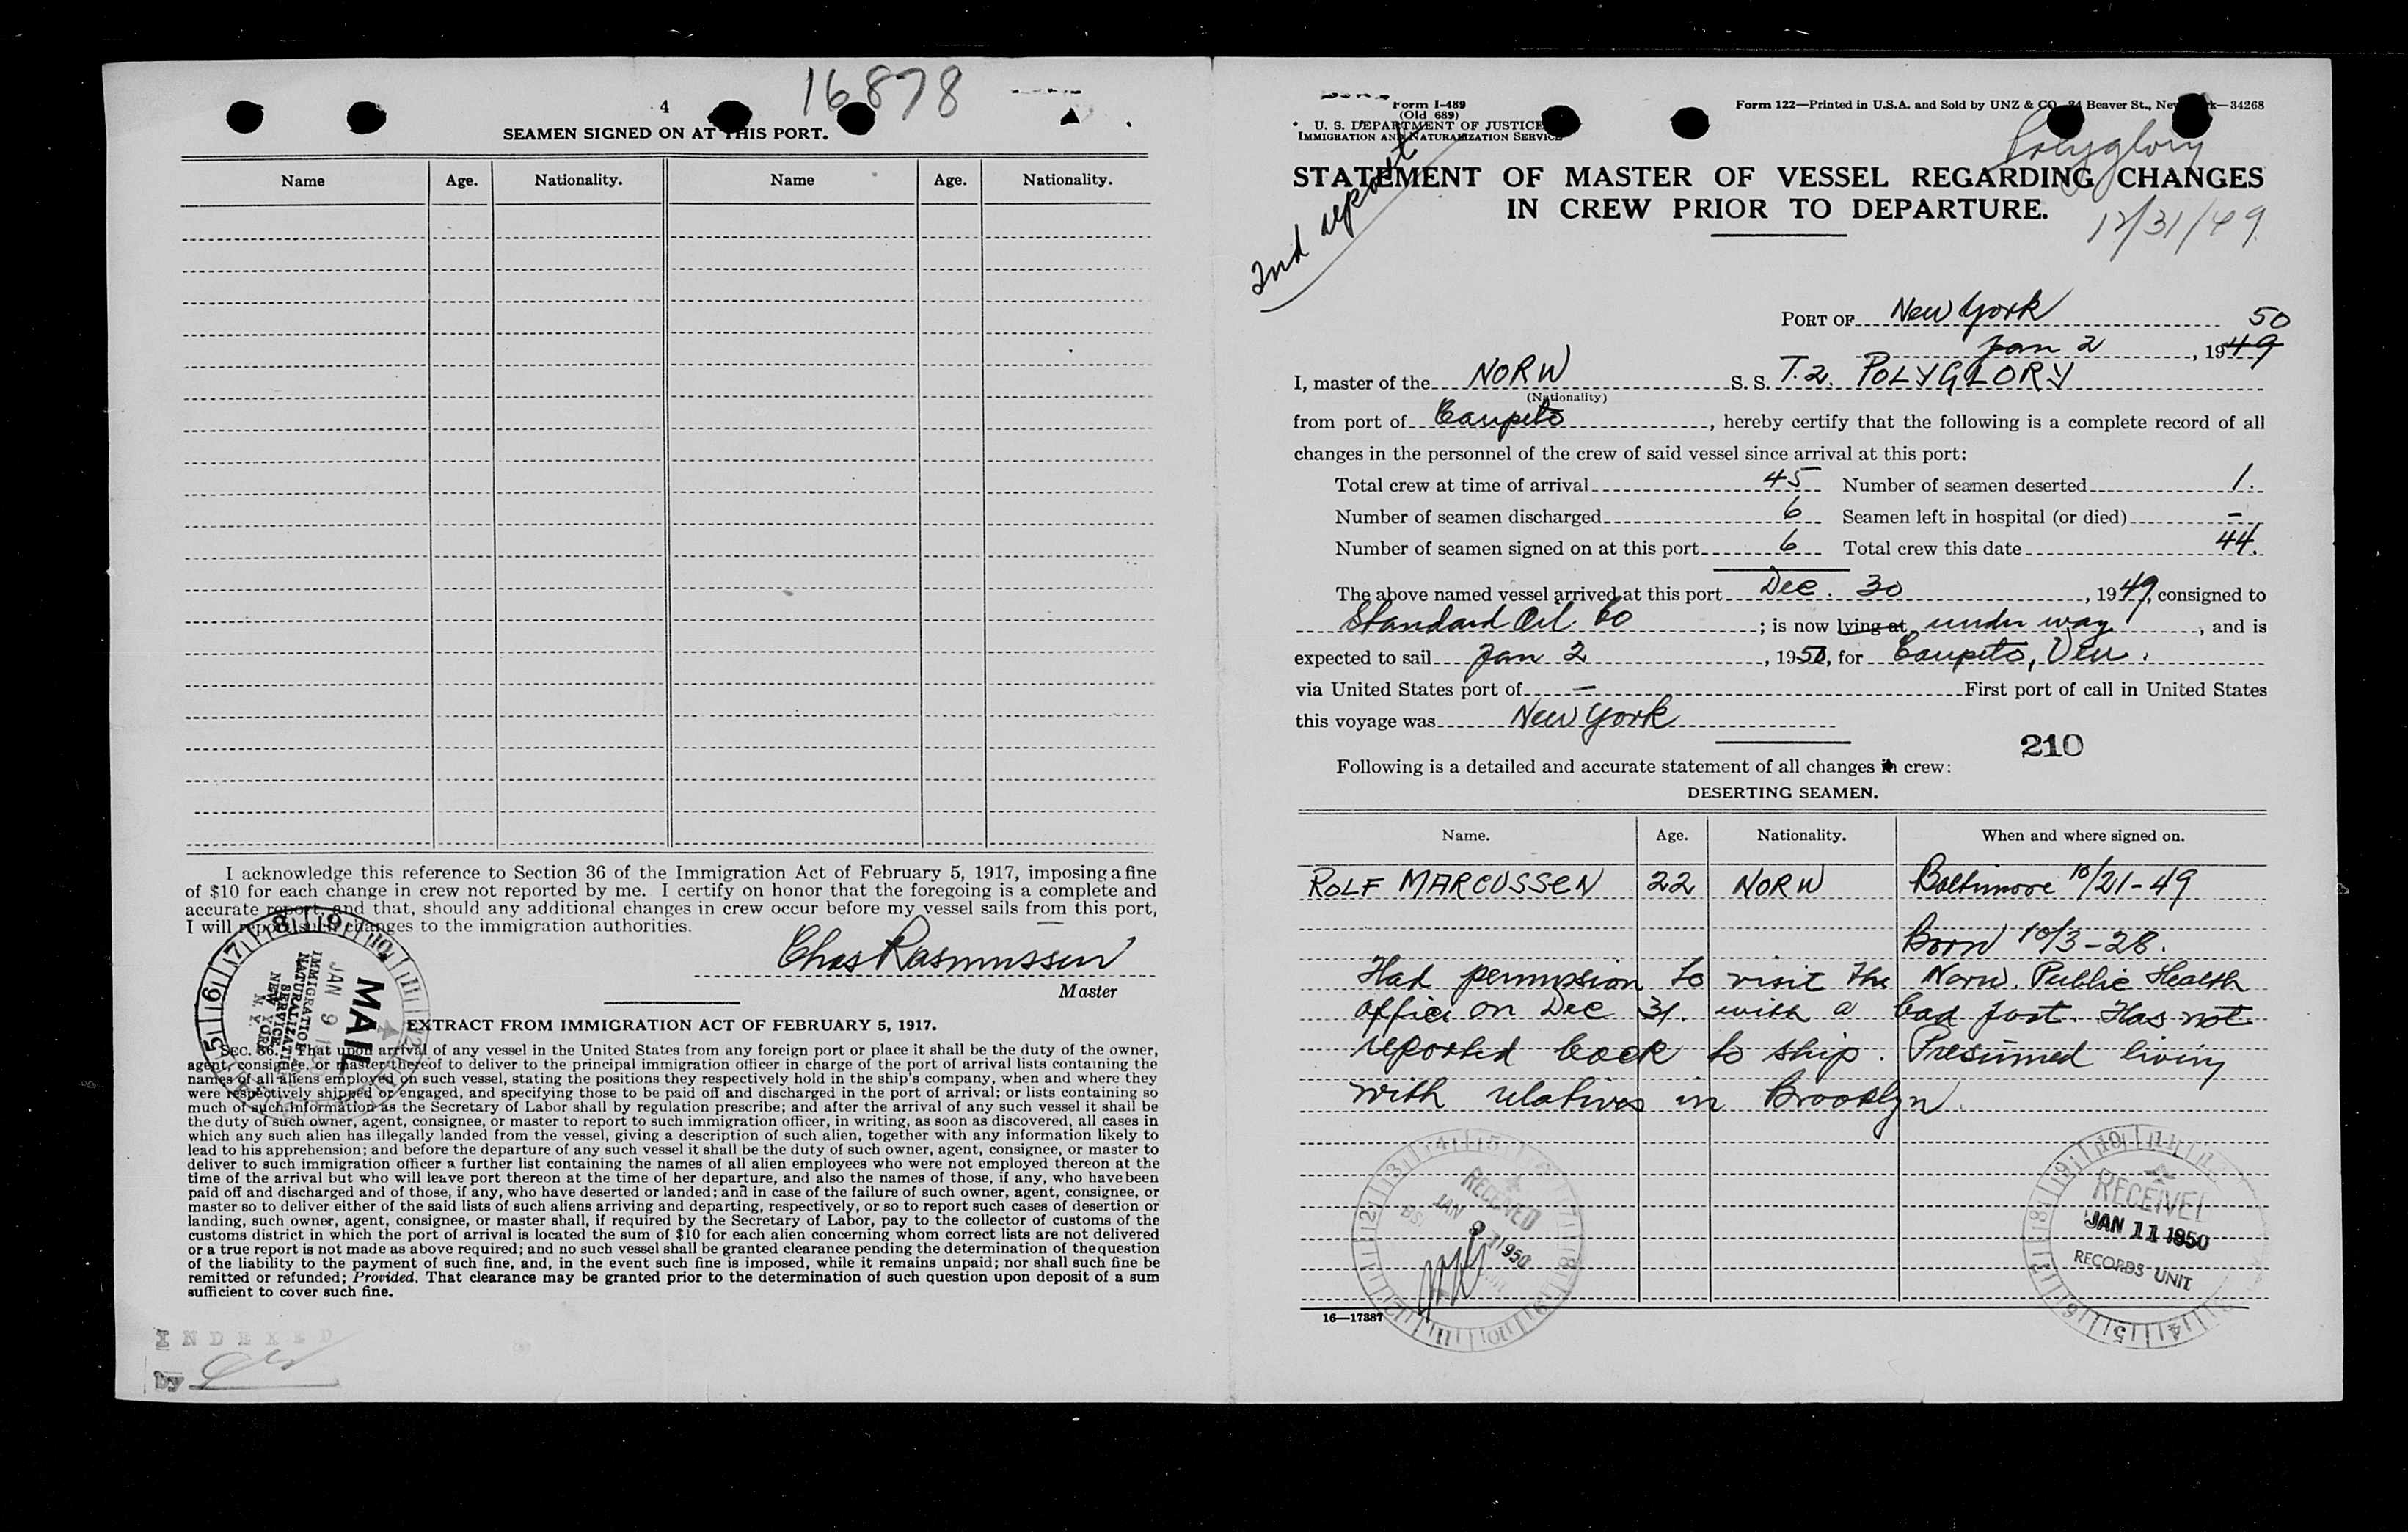 4
16878
SEAMEN SIGNED ON AT THIS PORT.
Name Age. Nationality. Name Age. Nationality.
I acknowledge this reference to Section 36 of the Immigration Act of February 5, 1917, imposing a fine
of $10 for each change in crew not reported by me. I certify on honor that the foregoing is a complete and
accurate report, and that, should any additional changes in crew occur before my vessel sails from this port,
I will report such changes to the immigration authorities.
Chas Rasmussen
Master
MAIL
JAN 9
IMMIGRATION &
NATURALIZATION
SERVICE
NEW YORK
N. Y.
EXTRACT FROM IMMIGRATION ACT OF FEBRUARY 5, 1917.
SEC. 36. That upon arrival of any vessel in the United States from any foreign port or place it shall be the duty of the owner,
agent, consignee, or master thereof to deliver to the principal immigration officer in charge of the port of arrival lists containing the
names of all aliens employed on such vessel, stating the positions they respectively hold in the ship's company, when and where they
were respectively shipped or engaged, and specifying those to be paid off and discharged in the port of arrival; or lists containing so
much of such information as the Secretary of Labor shall by regulation prescribe; and after the arrival of any such vessel it shall be
the duty of such owner, agent, consignee, or master to report to such immigration officer, in writing, as soon as discovered, all cases in
which any such alien has illegally landed from the vessel, giving a description of such alien, together with any information likely to
lead to his apprehension; and before the departure of any such vessel it shall be the duty of such owner, agent, consignee, or master to
deliver to such immigration officer a further list containing the names of all alien employees who were not employed thereon at the
time of the arrival but who will leave port thereon at the time of her departure, and also the names of those, if any, who have been
paid off and discharged and of those, if any, who have deserted or landed; and in case of the failure of such owner, agent, consignee, or
master so to deliver either of the said lists of such aliens arriving and departing, respectively, or so to report such cases of desertion or
landing, such owner, agent, consignee, or master shall, if required by the Secretary of Labor, pay to the collector of customs of the
customs district in which the port of arrival is located the sum of $10 for each alien concerning whom correct lists are not delivered
or a true report is not made as above required; and no such vessel shall be granted clearance pending the determination of the question
of the liability to the payment of such fine, and, in the event such fine is imposed, while it remains unpaid; nor shall such fine be
remitted or refunded; Provided, That clearance may be granted prior to the determination of such question upon deposit of a sum
sufficient to cover such fine.
INDEXED
by
Form I-489
(Old 689)
U. S. DEPARTMENT OF JUSTICE
IMMIGRATION AND NATURALIZATION SERVICE
Form 122—Printed in U.S.A. and Sold by UNZ & CO., 24 Beaver St., New York—34268
Polyglory
12/31/49
2nd report
STATEMENT OF MASTER OF VESSEL REGARDING CHANGES
IN CREW PRIOR TO DEPARTURE.
PORT OF New York
Jan 2, 1949 50
I, master of the NORW S. S. T.2. POLYGLORY
(Nationality)
from port of Caupito, hereby certify that the following is a complete record of all
changes in the personnel of the crew of said vessel since arrival at this port:
Total crew at time of arrival 45 Number of seamen deserted 1.
Number of seamen discharged 6 Seamen left in hospital (or died) –
Number of seamen signed on at this port 6 Total crew this date 44.
The above named vessel arrived at this port Dec. 30, 1949, consigned to
Standard Oil Co; is now lying at under way, and is
expected to sail Jan 2, 1950, for Caupito, Ven.
via United States port of — First port of call in United States
this voyage was New York
210
Following is a detailed and accurate statement of all changes in crew:
DESERTING SEAMEN.
Name. Age. Nationality. When and where signed on.
ROLF MARCUSSEN 22 NORW Baltimore 10/21-49
Born 10/3-28.
Had permission to visit the Norw. Public Health
office on Dec 31. with a bad foot. Has not
reported back to ship. Presumed living
with relatives in Brooklyn.
RECEIVED
JAN 9 1950
RECEIVED
JAN 11 1950
RECORDS UNIT
16—17387